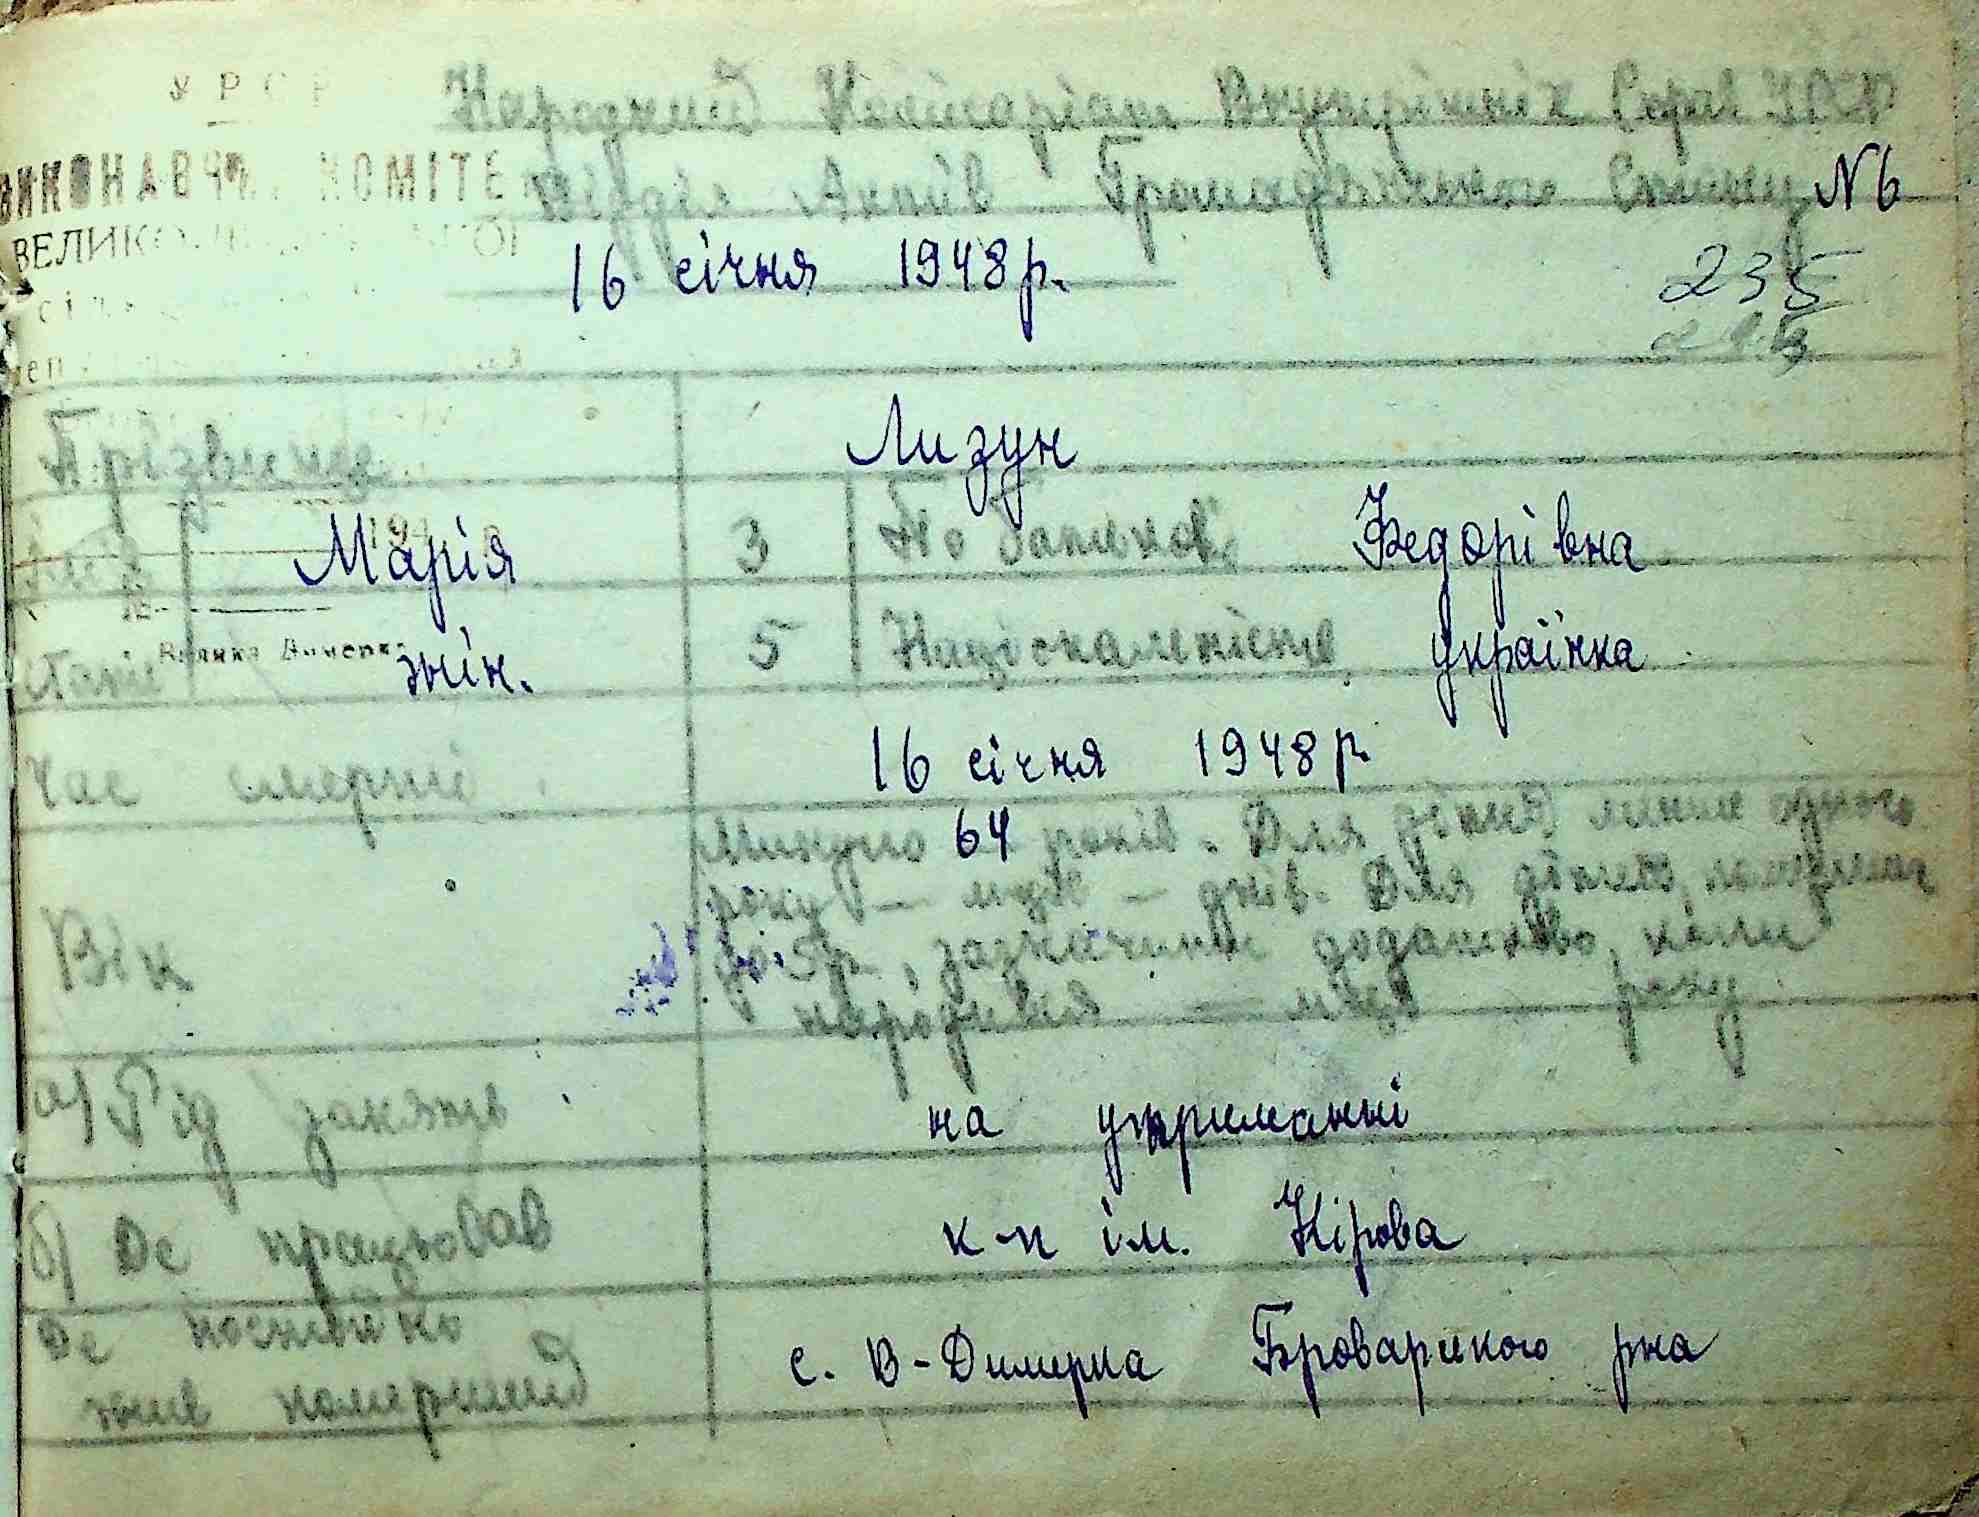 У Р С Р
Народний Комісаріат Внутрішніх Справ УРСР
ВИКОНАВЧ КОМІТЕ
Відділ Актів Громадянського Стану N 6
ВЕЛИКО
16 січня 1948 р.
235
Прізвище Лизун
Ім'я Марія 3 По батькові Федорівна
194
Велика Димерка
Стать жін. 5 Національність українка
Час смерті 16 січня 1948 р.
Минуло 64 років. Для дітей менше одного
року — міс — днів. Для дітей, померших
Вік
до 5 р., зазначити додатково, коли
народився — міс року
а) Рід занять на утриманні
б) Де працював к-п ім. Кірова
Де постійно
жив померший с. В-Димерка Броварського р-на